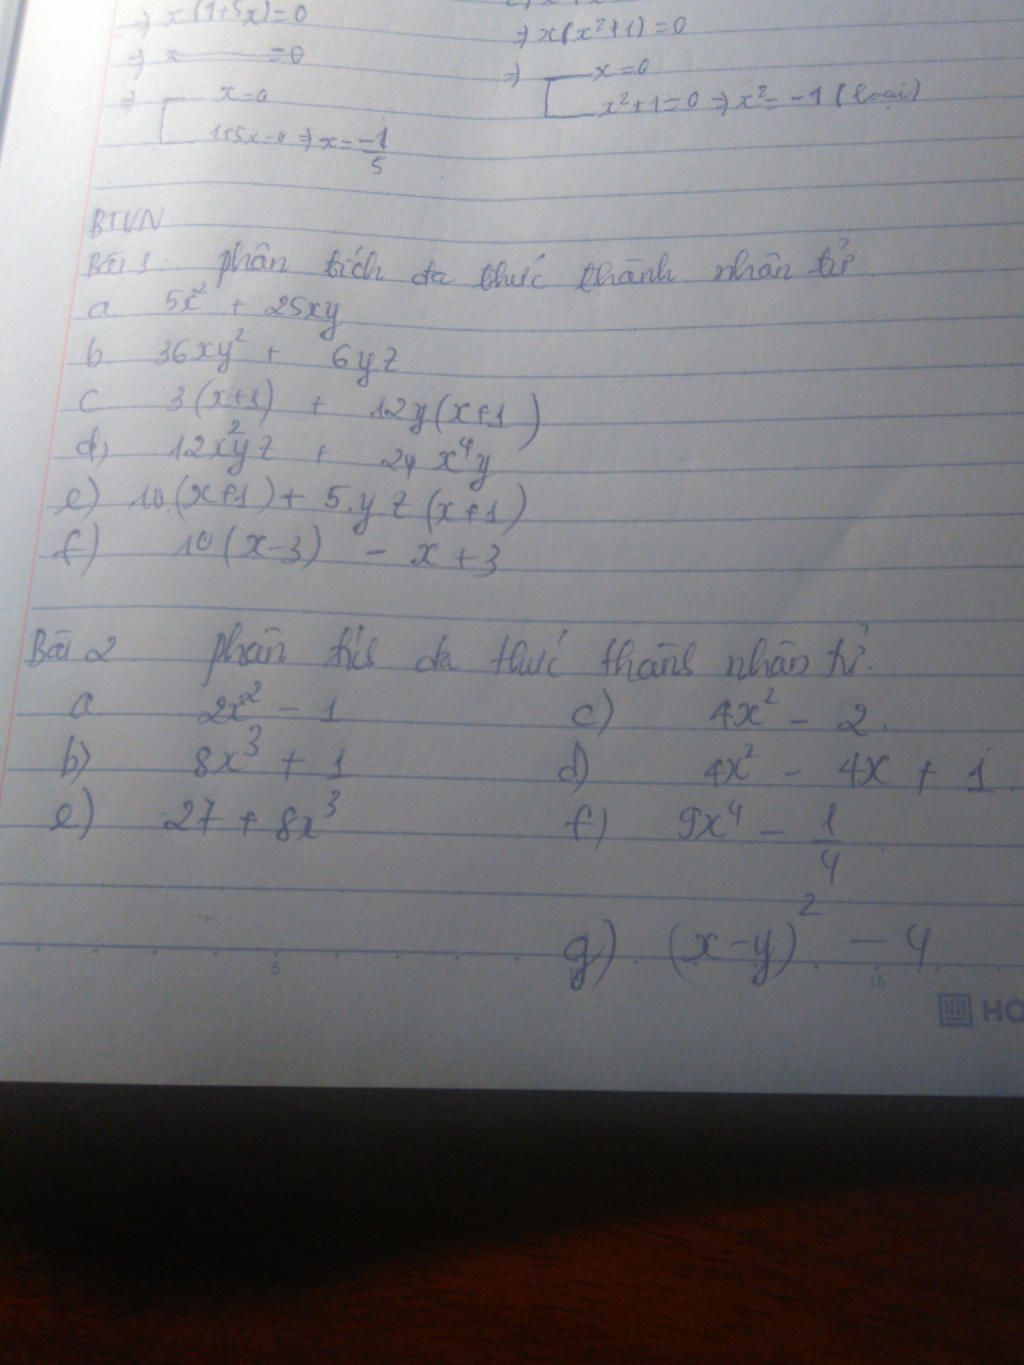 ⇒ x(1+5x)=0
⇒ x =0
⇒ x=0
1+5x=0 ⇒ x = -1/5
⇒ x(x²+1)=0
⇒ x=0
x²+1=0 ⇒ x²=-1 (loại)
BTVN
Bài 1 phân tích đa thức thành nhân tử
a 5x² + 25xy
b 36xy² + 6yz
c 3(x+1) + 12y(x+1)
d) 12x²yz + 24x⁴y
e) 10.(x+1) + 5.yz(x+1)
f) 10(x-3) - x+3
Bài 2 phân tík đa thức thành nhân tử.
a 2x² - 1 c) 4x² - 2.
b) 8x³ + 1 d) 4x² - 4x + 1
e) -27 + 8x³ f) 9x⁴ - 1/4
g) (x-y)² - 4
5 15
HO